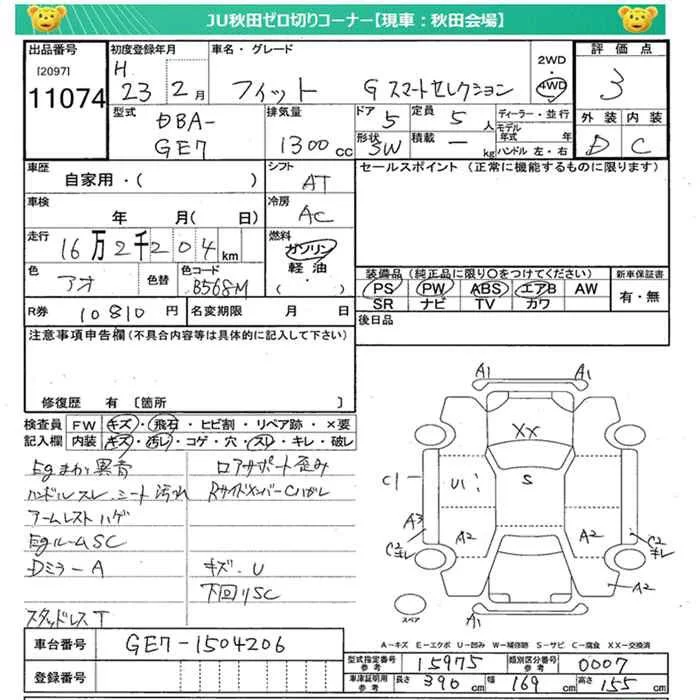 JU秋田ゼロ切りコーナー【現車：秋田会場】
出品番号 初度登録年月 車名・グレード 2WD・4WD 評価点
[2097] 11074 H 23 2月 フィット G スマートセレクション 3
型式 排気量 ドア 定員 ディーラー・並行 外装 内装
DBA-GE7 1300cc 5 5人 モデル年式 年 D C
形状 SW 積載 - kg ハンドル 左・右
車歴 シフト セールスポイント（正常に機能するものに限ります）
自家用・（ ） AT
車検 冷房
年 月（ 日） AC
走行 燃料
16万2千204km ガソリン・軽油・（ ）
色 色替 色コード 装備品（純正品に限り○をつけてください） 新車保証書
アオ B568M PS PW ABS エアB AW 有・無
SR ナビ TV カワ
R券 10810円 名変期限 月 日 後日品
注意事項申告欄（不具合内容等は具体的に記入して下さい）
修復歴 有〔箇所
検査員記入欄 FW キズ・飛石・ヒビ割・リペア跡・×要
内装 キズ・汚レ・コゲ・穴・スレ・キレ・破レ
Egまわり異音 ロアサポート歪み
ハンドルスレ、シート汚れ RサイドメンバーCハガレ
アームレストハゲ
EgルームSC
Dミラー A キズ・U
下回りSC
スタッドレスT
A1 A1
XX
C1 U1 S
A3 A2 A2 C2 キレ C2 キレ
A2
A1
スペア
A−キズ E−エクボ U−凹み W−補修跡 S−サビ C−腐食 XX−交換済
車台番号 GE7-1504206
型式指定番号参考 15975 類別区分番号参考 0007
登録番号
車庫証明用参考 長さ 390cm 幅 169cm 高さ 155cm